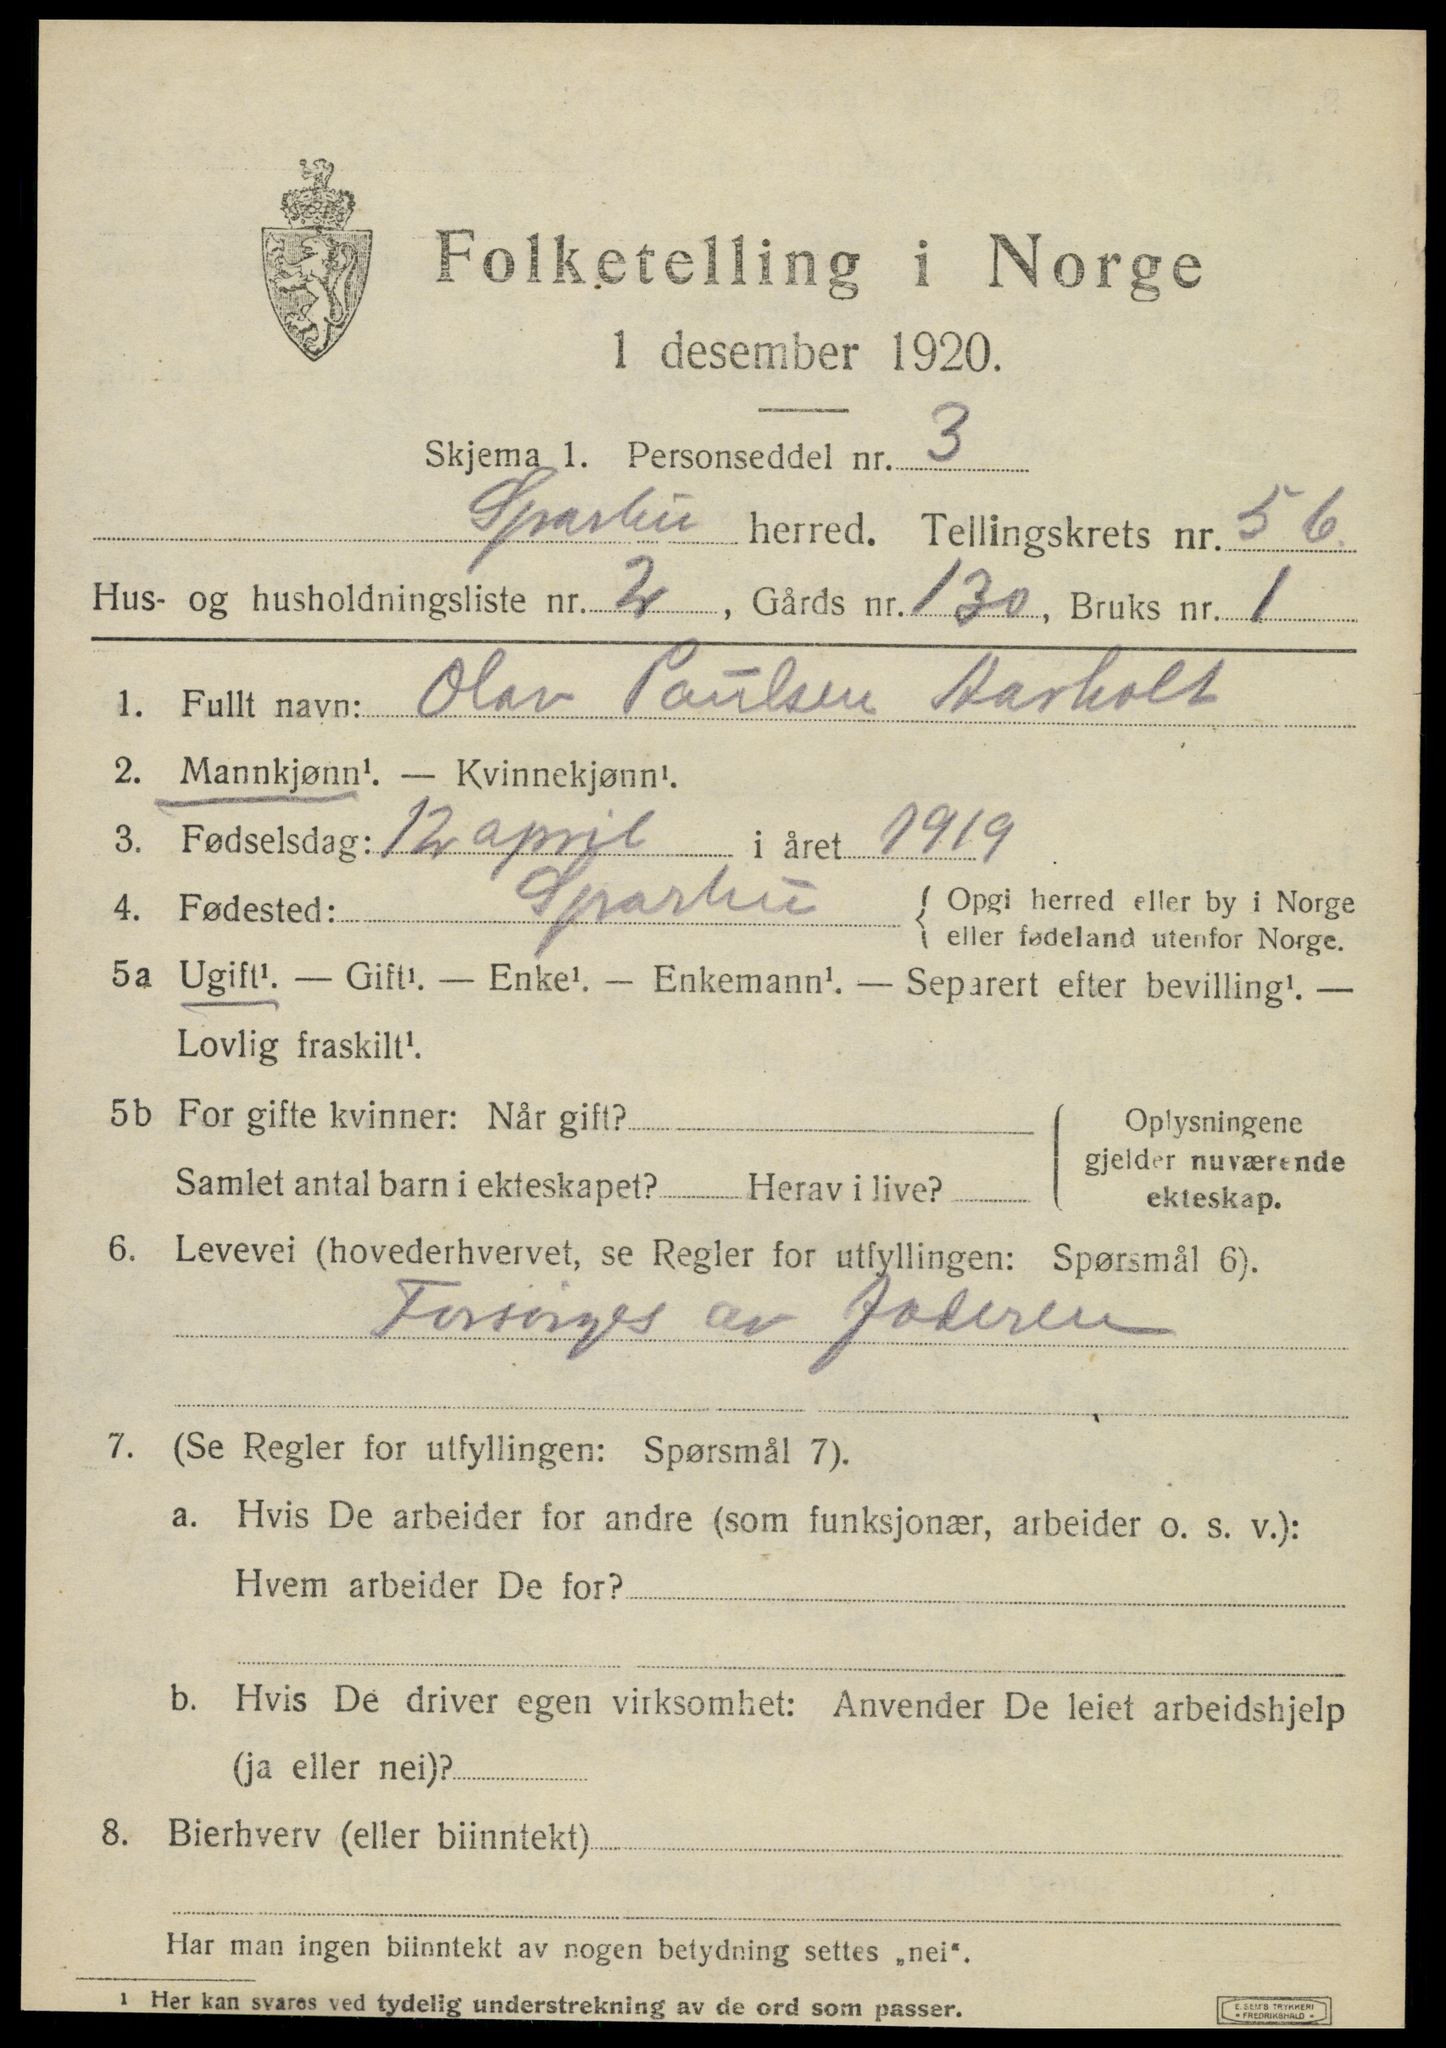 Folketelling i Norge
1 desember 1920.
Skjema 1. Personseddel nr. 3
Sparbu herred. Tellingskrets nr. 5 6.
Hus- og husholdningsliste nr. 2, Gårds nr. 130, Bruks nr. 1
1. Fullt navn: Olav Paulsen Aarholt
2. Mannkjønn¹. — Kvinnekjønn¹.
3. Fødselsdag: 12 april i året 1919
4. Fødested: Sparbu { Opgi herred eller by i Norge
eller fødeland utenfor Norge.
5a Ugift¹. — Gift¹. — Enke¹. — Enkemann¹. — Separert efter bevilling¹. —
Lovlig fraskilt¹.
5b For gifte kvinner: Når gift? { Oplysningene
gjelder nuværende
Samlet antal barn i ekteskapet? Herav i live? ekteskap.
6. Levevei (hovederhvervet, se Regler for utfyllingen: Spørsmål 6).
Forsørges av faderen
7. (Se Regler for utfyllingen: Spørsmål 7).
a. Hvis De arbeider for andre (som funksjonær, arbeider o. s. v.):
Hvem arbeider De for?
b. Hvis De driver egen virksomhet: Anvender De leiet arbeidshjelp
(ja eller nei)?
8. Bierhverv (eller biinntekt)
Har man ingen biinntekt av nogen betydning settes „nei“.
1 Her kan svares ved tydelig understrekning av de ord som passer.
E. SEM'S TRYKKERI
• FREDRIKSHALD •